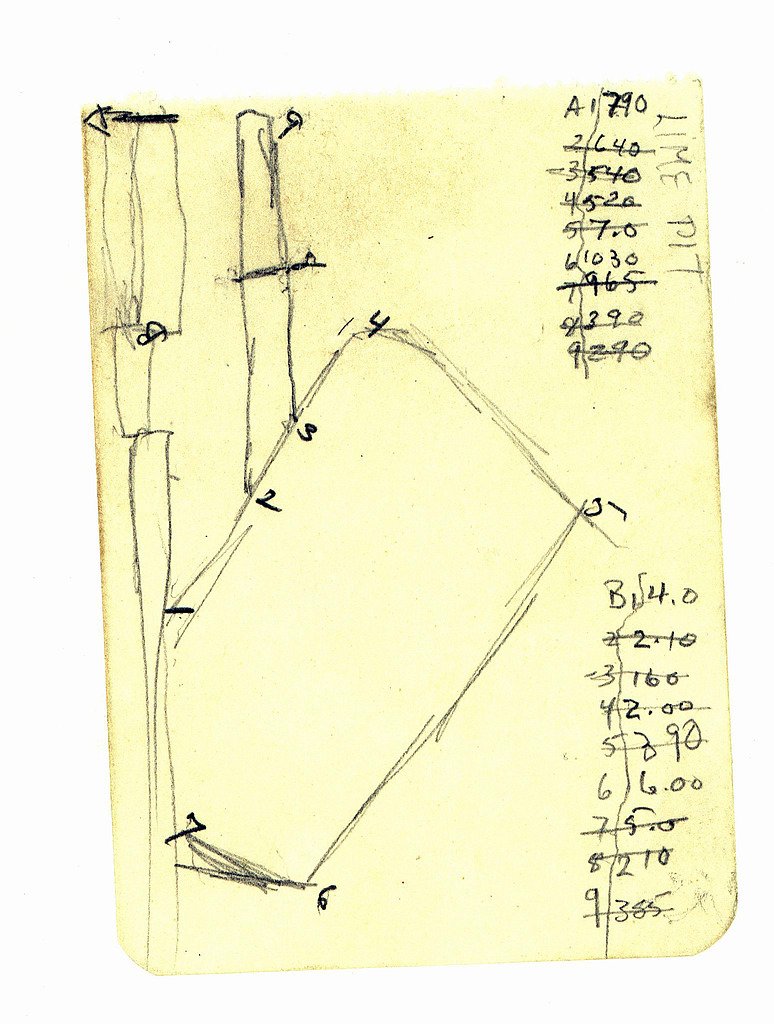 A 1 790
2 640
3 540
4 520
5 7.0
6 1030
7 965
8 390
9 290
LIME PIT
9
8
4
3
2
5
1
B 1 4.0
2 2.10
3 160
4 2.00
5 3 90
6 6.00
7 5.0
8 210
9 385
7
6